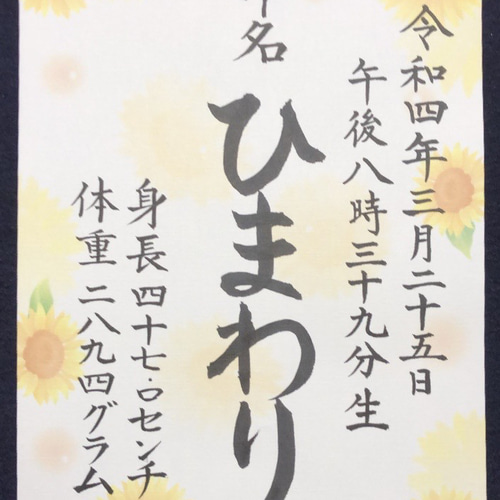 令和四年三月二十五日
午後八時三十九分生
名
ひまわり
身長四十七.〇センチ
体重二八九四グラム